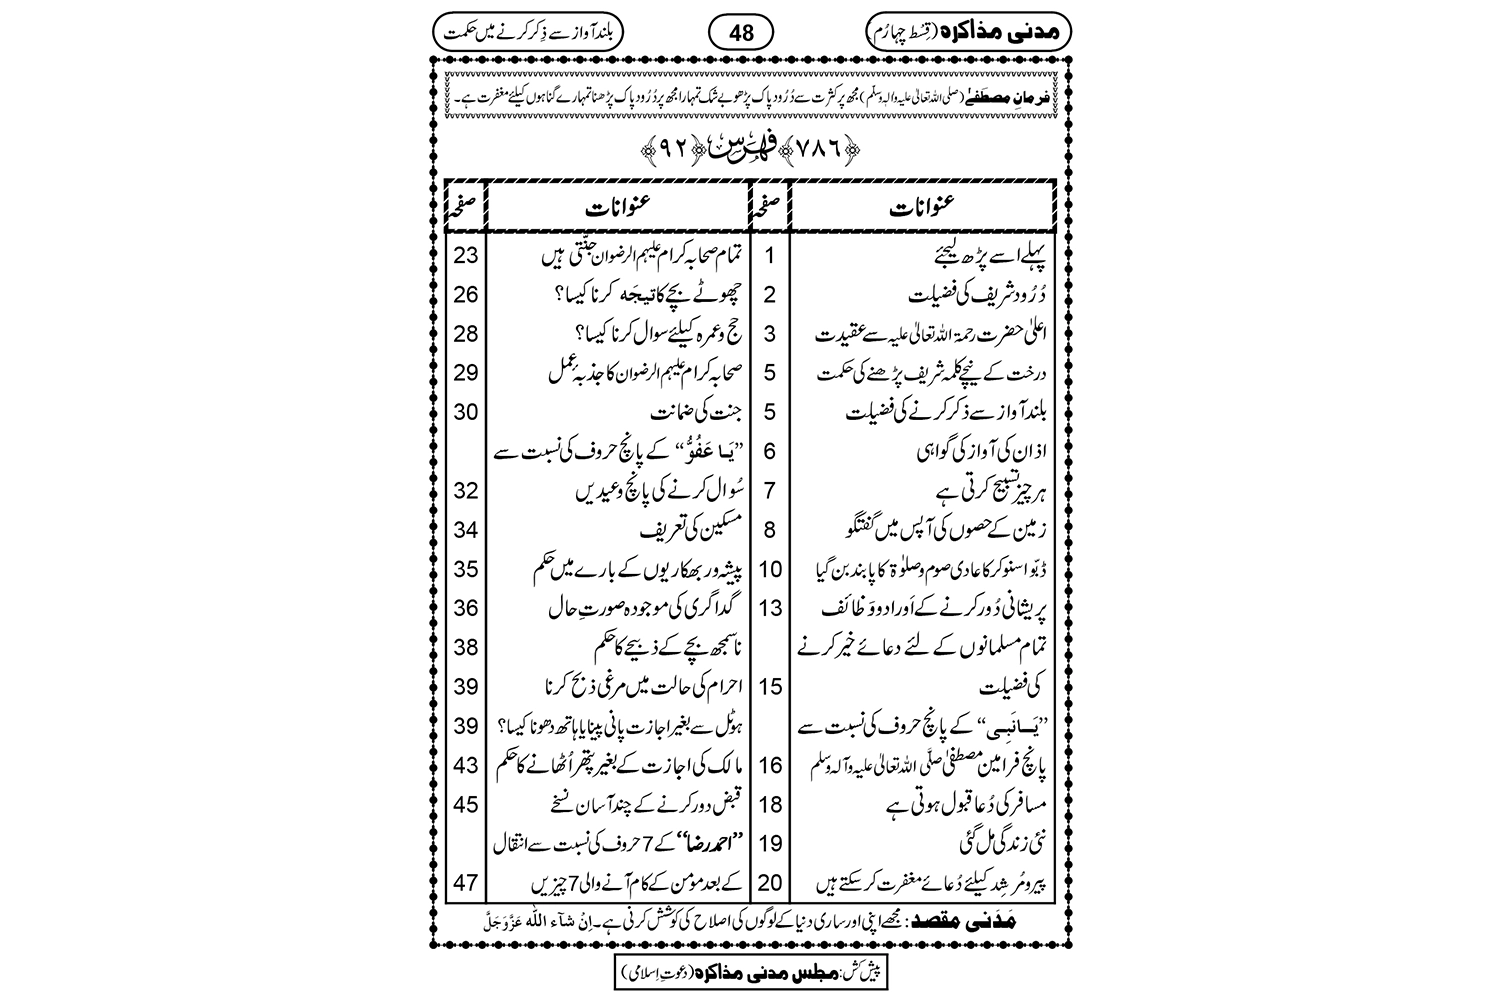 مدنی مذاکره (قسط چہارم)
48
بلند آواز سے ذِکر کرنے میں حکمت
فرمانِ مصطفےٰ (صلی اللہ تعالیٰ علیہ والہٖ وسلم) مجھ پر کثرت سے دُرُود پاک پڑھو بے شک تمہارا مجھ پر دُرُود پاک پڑھنا تمہارے گناہوں کیلئے مغفرت ہے۔
﴿۷۸۶﴾ فہرس ﴿۹۲﴾
عنوانات صفحہ عنوانات صفحہ
پہلے اسے پڑھ لیجئے 1
دُرُود شریف کی فضیلت 2
اعلیٰ حضرت رحمۃ اللہ تعالیٰ علیہ سے عقیدت 3
درخت کے نیچے کلمہ شریف پڑھنے کی حکمت 5
بلند آواز سے ذکر کرنے کی فضیلت 5
اذان کی آواز کی گواہی 6
ہر چیز تسبیح کرتی ہے 7
زمین کے حصوں کی آپس میں گفتگو 8
ڈبّو اسنوکر کا عادی صوم و صلوٰۃ کا پابند بن گیا 10
پریشانی دُور کرنے کے اَوراد و وَظائف 13
تمام مسلمانوں کے لئے دعائے خیر کرنے
کی فضیلت 15
”یَـا نَبِـی“ کے پانچ حروف کی نسبت سے
پانچ فرامین مصطفیٰ صلَّی اللہ تعالیٰ علیہ وآلہ وسلم 16
مسافر کی دُعا قبول ہوتی ہے 18
نئی زندگی مل گئی 19
پیر و مُرشِد کیلئے دُعائے مغفرت کر سکتے ہیں 20
تمام صحابہ کرام علیہم الرضوان جنّتی ہیں 23
چھوٹے بچے کا تیجَہ کرنا کیسا؟ 26
حج و عمرہ کیلئے سوال کرنا کیسا؟ 28
صحابہ کرام علیہم الرضوان کا جذبۂ عمل 29
جنت کی ضمانت 30
”یَـا عَفُوُّ“ کے پانچ حروف کی نسبت سے
سُوال کرنے کی پانچ وعیدیں 32
مسکین کی تعریف 34
پیشہ ور بھکاریوں کے بارے میں حکم 35
گداگری کی موجودہ صورتِ حال 36
ناسمجھ بچے کے ذبیحے کا حکم 38
احرام کی حالت میں مرغی ذبح کرنا 39
ہوٹل سے بغیر اجازت پانی پینا یا ہاتھ دھونا کیسا؟ 39
مالک کی اجازت کے بغیر پتھر اُٹھانے کا حکم 43
قبض دور کرنے کے چند آسان نسخے 45
”احمد رضا“ کے 7 حروف کی نسبت سے انتقال
کے بعد مومن کے کام آنے والی 7 چیزیں 47
مَدَنی مقصد : مجھے اپنی اور ساری دنیا کے لوگوں کی اصلاح کی کوشش کرنی ہے۔ اِنْ شَآءَ اللہ عَزَّوَجَلَّ
پیش کش: مجلس مدنی مذاکره (دعوتِ اِسلامی)